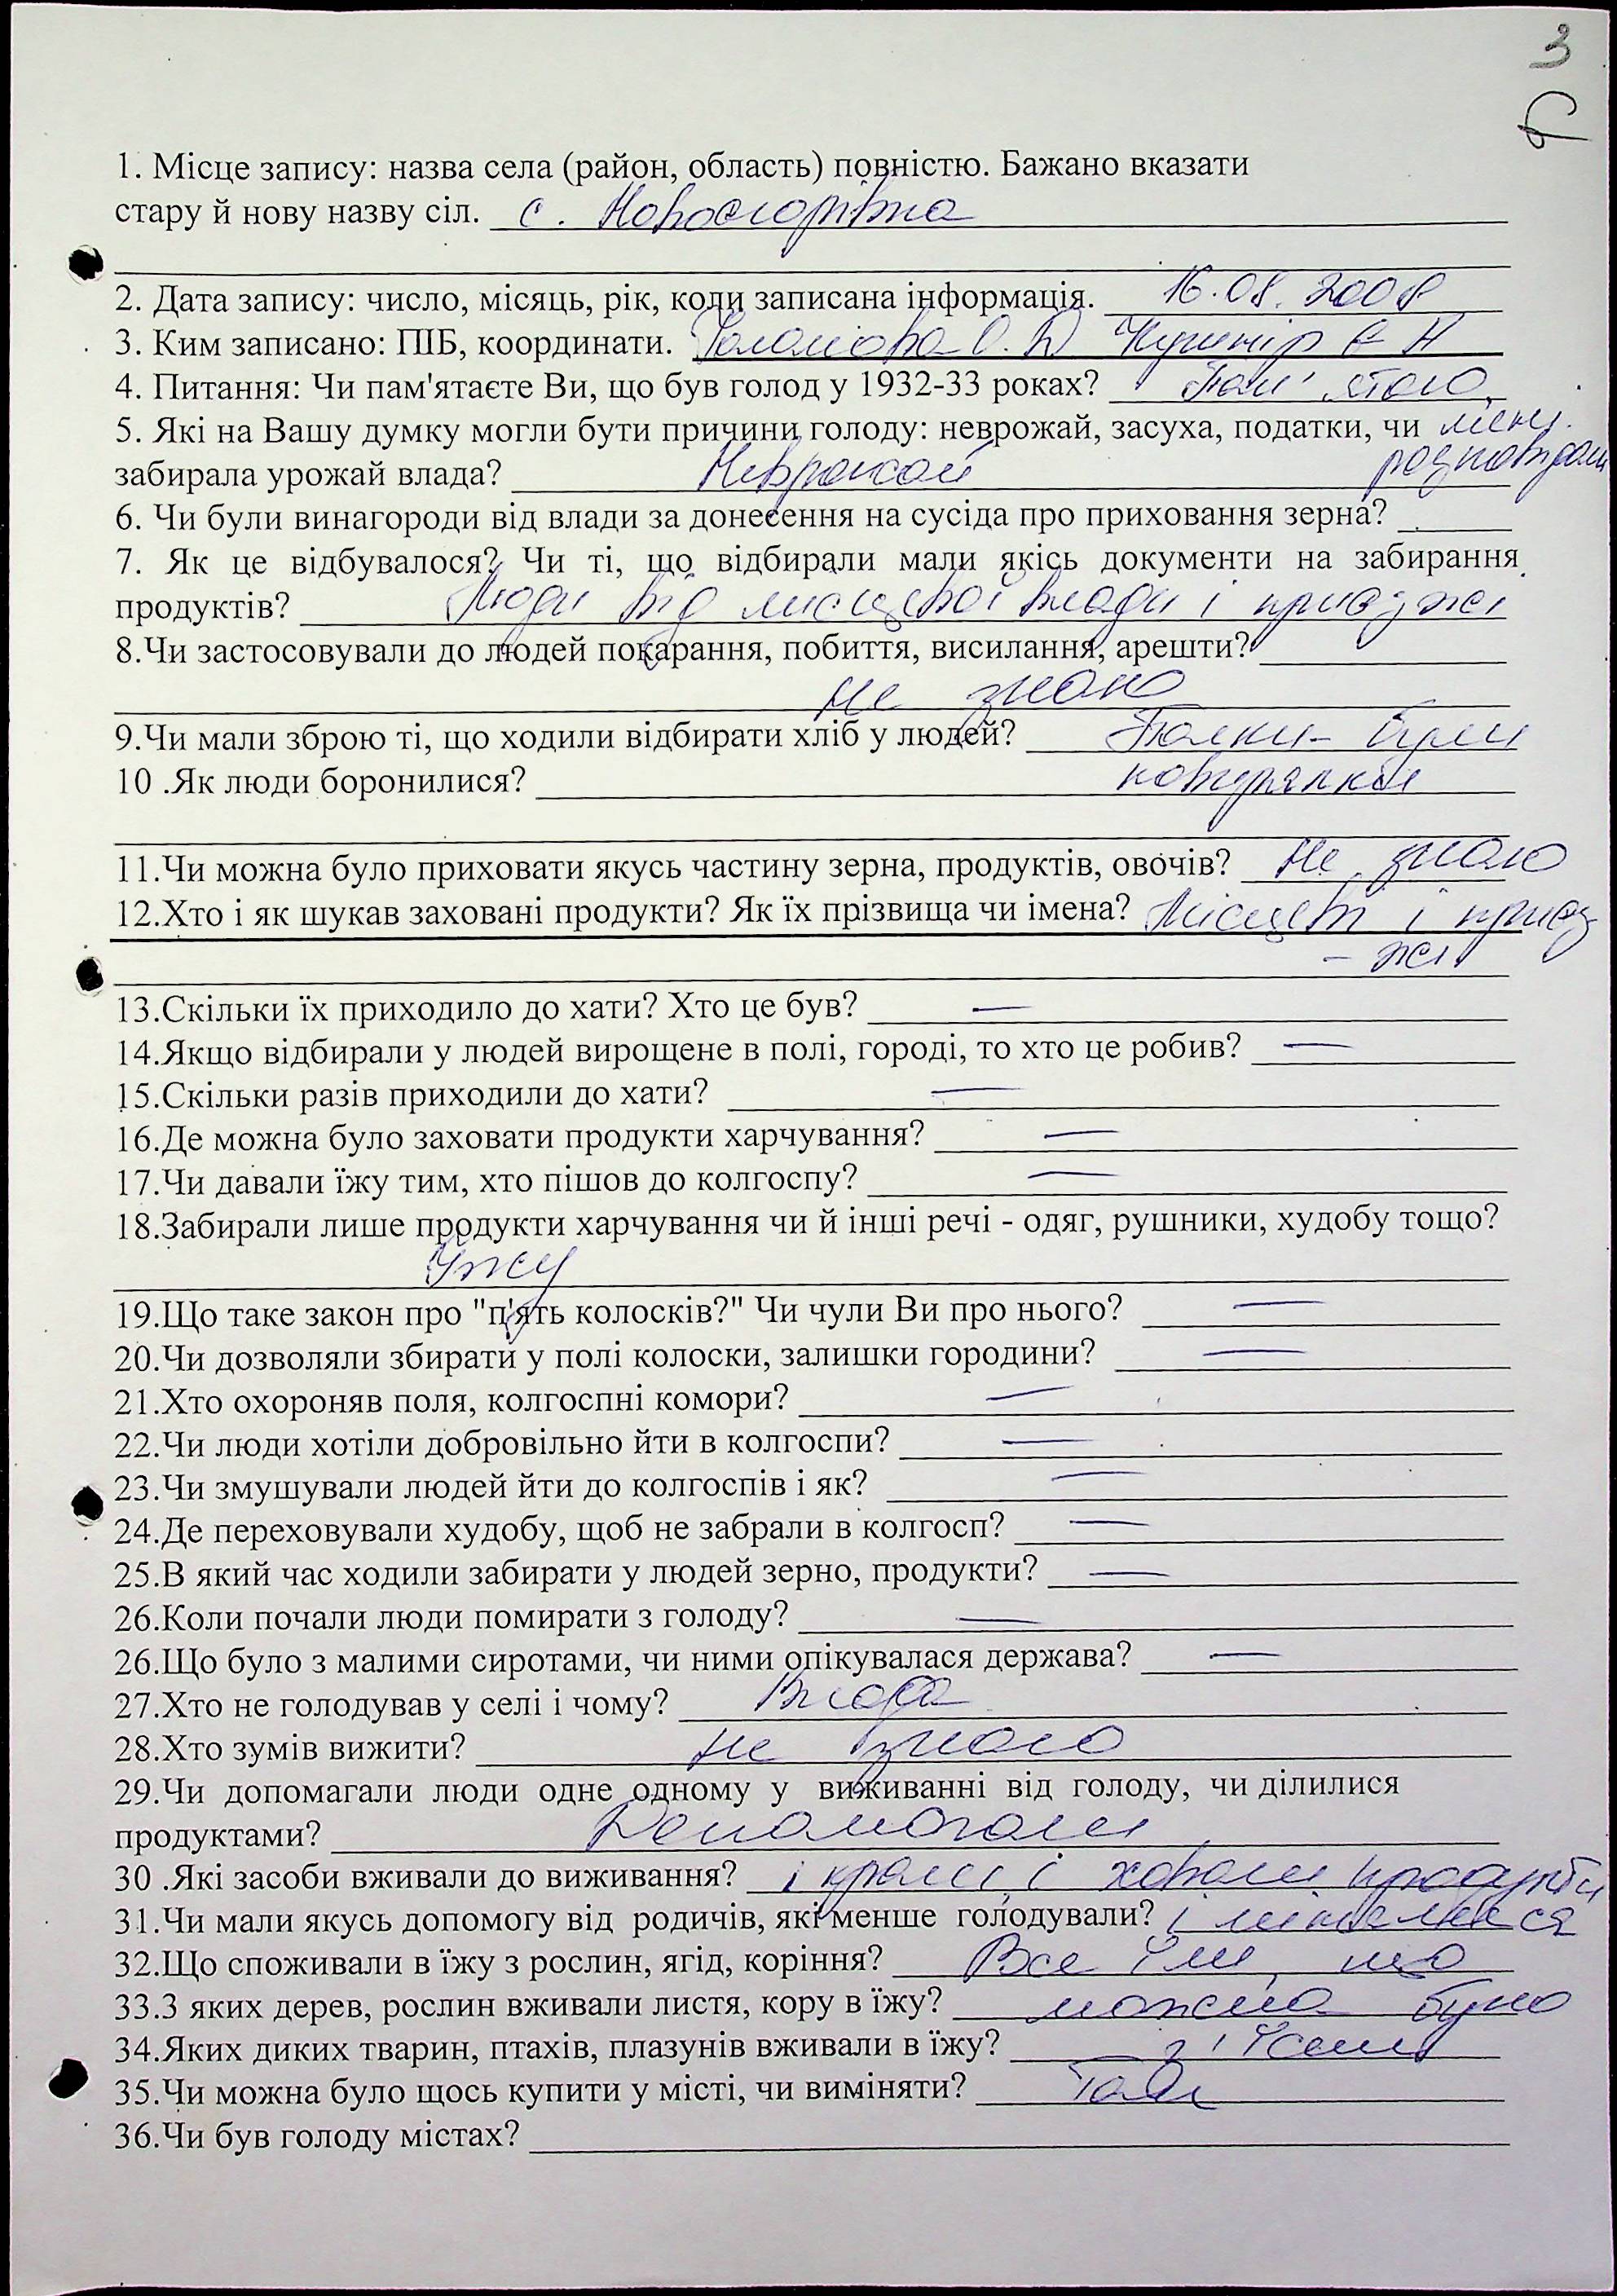 3
1. Місце запису: назва села (район, область) повністю. Бажано вказати
стару й нову назву сіл. с. Новоєгорівка
2. Дата запису: число, місяць, рік, коли записана інформація. 16.08.2008
3. Ким записано: ПІБ, координати. О. Кушнір Є Н
4. Питання: Чи пам'ятаєте Ви, що був голод у 1932-33 роках? Пам'ятаю,
5. Які на Вашу думку могли бути причини голоду: неврожай, засуха, податки, чи мені
забирала урожай влада? Неврожай розповідали
6. Чи були винагороди від влади за донесення на сусіда про приховання зерна?
7. Як це відбувалося? Чи ті, що відбирали мали якісь документи на забирання
продуктів? Люди від місцевої влади і приєзжі
8.Чи застосовували до людей покарання, побиття, висилання, арешти?
Не знаю
9.Чи мали зброю ті, що ходили відбирати хліб у людей? Палки були
10 .Як люди боронилися?
11.Чи можна було приховати якусь частину зерна, продуктів, овочів? Не знаю
12.Хто і як шукав заховані продукти? Як їх прізвища чи імена? Місцеві і приєз
- жі
13.Скільки їх приходило до хати? Хто це був? —
14.Якщо відбирали у людей вирощене в полі, городі, то хто це робив? —
15.Скільки разів приходили до хати? —
16.Де можна було заховати продукти харчування? —
17.Чи давали їжу тим, хто пішов до колгоспу? —
18.Забирали лише продукти харчування чи й інші речі - одяг, рушники, худобу тощо?
Їжу
19.Що таке закон про "п'ять колосків?" Чи чули Ви про нього? —
20.Чи дозволяли збирати у полі колоски, залишки городини? —
21.Хто охороняв поля, колгоспні комори? —
22.Чи люди хотіли добровільно йти в колгоспи? —
23.Чи змушували людей йти до колгоспів і як? —
24.Де переховували худобу, щоб не забрали в колгосп? —
25.В який час ходили забирати у людей зерно, продукти? —
26.Коли почали люди помирати з голоду? —
26.Що було з малими сиротами, чи ними опікувалася держава? —
27.Хто не голодував у селі і чому? Влада
28.Хто зумів вижити? Не знаю
29.Чи допомагали люди одне одному у виживанні від голоду, чи ділилися
продуктами? Допомагали
30 .Які засоби вживали до виживання? і крали і ховали продукти
31.Чи мали якусь допомогу від родичів, які менше голодували? і
32.Що споживали в їжу з рослин, ягід, коріння? Все їли, що
33.З яких дерев, рослин вживали листя, кору в їжу? можна було
34.Яких диких тварин, птахів, плазунів вживали в їжу? з'їсти
35.Чи можна було щось купити у місті, чи виміняти? Так
36.Чи був голоду містах?